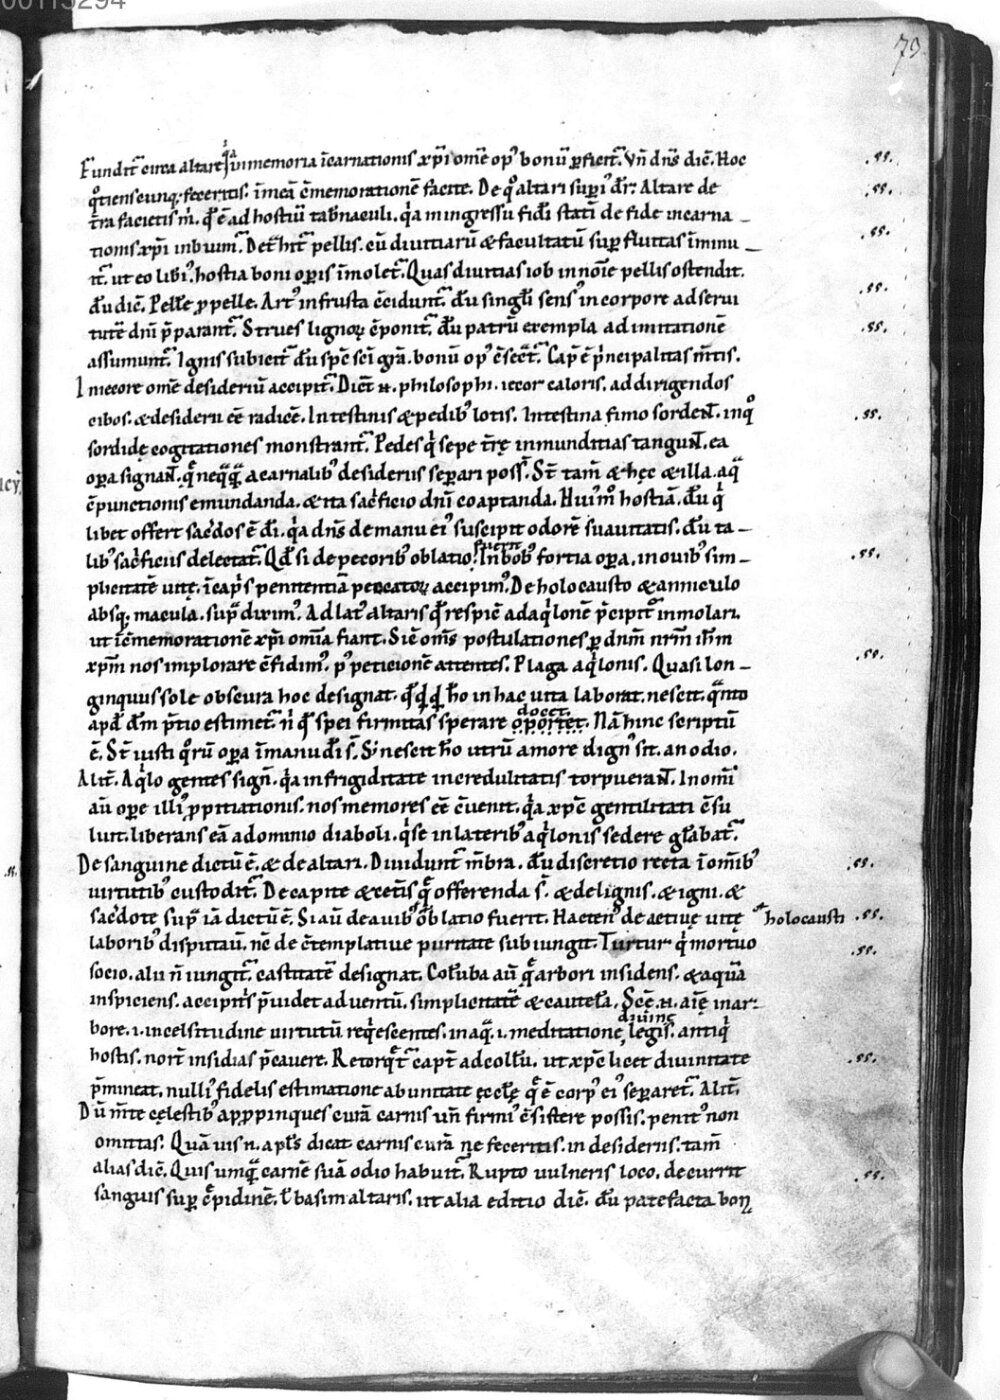 00115294
79
Fundit̄ circa altare q̓a in memoria īcarnationis xp̄i om̄e opꝰ bonū ꝑficit̄. Vn̄ dn̄s dic̄. Hoc
q°tienscunq; feceritis. in meā c̄memorationē facite. De q° altari supiꝰ dr̄: Altare de
t̄ra facietis m̓. qđ ē ad hostiū tab̄naculi. q̓a in ingressu fidi̓ statī de fide incarna
tionis xp̄i inbuim̄. Det̄hit̄ pellis. cū diuitiarū & facultatū suꝑfluitas iminu
it̄. ut eo lib̓iꝰ hostia boni oꝑis imolet̄. Quas diuitias iob in noīe pellis ostendit.
du̓ dic̄. Pellē ꝓ pelle. Artꝰ in frusta c̄cidunt̄. du̓ singl̓i sensꝰ in corpore ad serui
tutē dn̄i p̄parant̄. Strues lignoꝝ c̄ponit̄. du̓ patrū exempla ad imitationē
assumunt̄. Ignis subicit̄ du̓ sp̄c sc̄i gr̄a. bonū opꝰ c̄sec̄t̄. Cap̄ ē p̓ncipalitas m̄tis.
In iecore om̄e desideriū accipit̄. Dic̄t n̄. philosophi. iecor caloris. ad dirigendos
cibos. & desiderii eē radicē. Intestinis & pedibꝰ lotis. Intestina fimo sordent. in q°
sordidę cogitationes monstrant̄. Pedes q̓ sepe t̄rę inmunditias tangunt. ea
oꝑa signant. q̄ neq̄q̄ a carnalibꝰ desideriis seꝑari poss̄. St̄ tam̄ & hęc & illa. aq̄
c̄punctionis emundanda. & ita sac̓ficio dn̄i coaptanda. Huiꝰm̄ hostiā. du̓ q̓
libet offert sac̓dos ē di̓. q̓a dn̄s de manu eiꝰ suscipit odorē suauitatis. du̓ ta
libꝰ sac̓ficiis delectat̄. Qđ si de pecoribꝰ oblatio fuerit. In bobꝰ fortia oꝑa. in ouibꝰ sim
plicitatē uitę. ī cap̓s penitentiā peccatoꝝ accipimꝰ. De holocausto & anniculo
absq; macula. sup̄ diximꝰ. Ad latꝰ altaris qđ respic̄ ad aq̓lonē p̄cipit̄ immolari.
ut ī c̄memorationē xp̄i om̄ia fiant. Sic̄ om̄s postulationes ꝑ dn̄m nr̄m ih̄m
xp̄m nos implorare c̄fidimꝰ. pꝰ peticionē attentes. Plaga aq̓lonis. Quasi lon
ginquus sole obscura hoc designat. qđ q̓dq̓d ho̓ in hac uita laborat. nescit. q̄nto
apđ dm̄ p̄tio estimet̄. n̓ qđ spei firmitas sperare docet oportet. Nā hinc scriptū
ē. St̄ iusti q°rū oꝑa in manu di̓ s̄. S; nescit ho̓ utrū amore dignꝰ sit. an odio.
Alit̄. Aq̓lo gentes sign̄. q̓a in frigiditate incredulitatis torpuerant. In om̄i
au̓ oꝑe illiꝰ ꝓpitiationis. nos memores eē c̄uenit. q̓a xp̄c gentilitati c̄su
luit. liberans eā a dominio diaboli. q̓ se in lateribꝰ aq̓lonis sedere gl̓abat̄.
De sanguine dictū ē. & de altari. Diuidunt̄ m̄bra. du̓ discretio recta ī om̄ibꝰ
uirtutibꝰ custodit̄. De capite & cet̄is q̄ offerenda s̄. & de lignis. & igni. &
sac̓dote sup̄ iā dictū ē. Si au̓ de auibꝰ oblatio fuerit. Hactenꝰ de actiuę uitę holocausti
laboribꝰ disputau̓. nc̄ de c̄templatiue puritate subiungit. Turtur q̓ mortuo
socio. alii n̄ iungit̄. castitatē designat. Colūba au̓ q̄ arbori insidens. & aquā
inspiciens. accipit̓s p̄uidet aduentū. simplicitatē & cautelā. Sc̄ę n̄. aīę in ar
bore. i. in celsitudine uirtutū req̓escentes. in aq̄. i. meditatione diuinę legis. antiq̓
hostis. nor̄t insidias p̄cauere. Retorq̄t̄ cap̄t ad collū. ut xp̄c licet diuinitate
p̄mineat. nulliꝰ fidelis estimatione ab unitate ęcclę q̄ ē corpꝰ eiꝰ seꝑaret̄. Alit̄.
Dū m̄te cęlestibꝰ aꝓpinques curā carnis un̄ firmiꝰ c̄sistere possis. penitꝰ non
omittas. Quāuis n̄. apl̓s dicat carnis curā ne feceritis. in desideriis. tam̄
alias dic̄. Quis umq̄ carnē suā odio habuit̄. Rupto uulneris loco. decurrit
sanguis suꝑ c̄pidinē. ł basim altaris. ut alia editio dic̄. du̓ patefacta bonꝝ